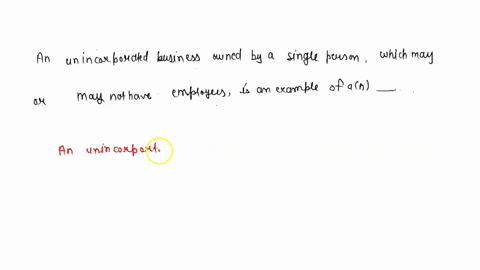 An unincorporated business owned by a single person, which may
or may not have employees, is an example of a(n) ___.
An unincorport.